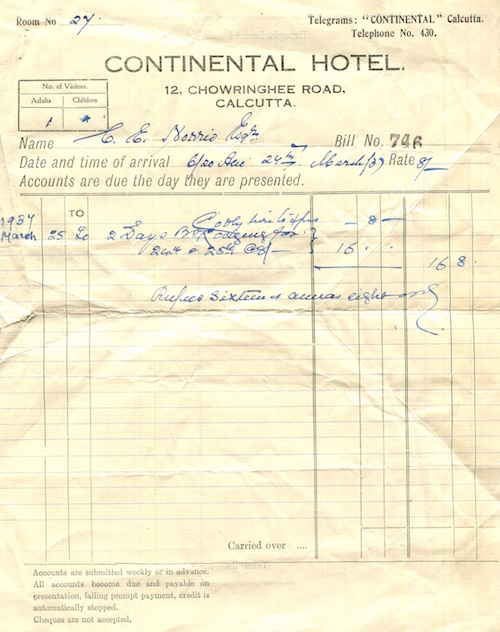 Room No 27.
Telegrams: "CONTINENTAL" Calcutta.
Telephone No. 430.
CONTINENTAL HOTEL.
12, CHOWRINGHEE ROAD,
CALCUTTA.
No. of Visitors.
Adults Children
1
Name C. E. Norris Esqre Bill No. 746
Date and time of arrival 6/20 Am 24th March/37 Rate 8/-
Accounts are due the day they are presented.
TO
1937 Cooly hire – 8 –
March 25 To 2 Days Bd & Lodging for }
24th & 25th @ 8/- } 16 " "
16 8 .
Rupees Sixteen & annas eight only
Carried over ....
Accounts are submitted weekly or in advance.
All accounts become due and payable on
presentation, failing prompt payment, credit is
automatically stopped.
Cheques are not accepted.